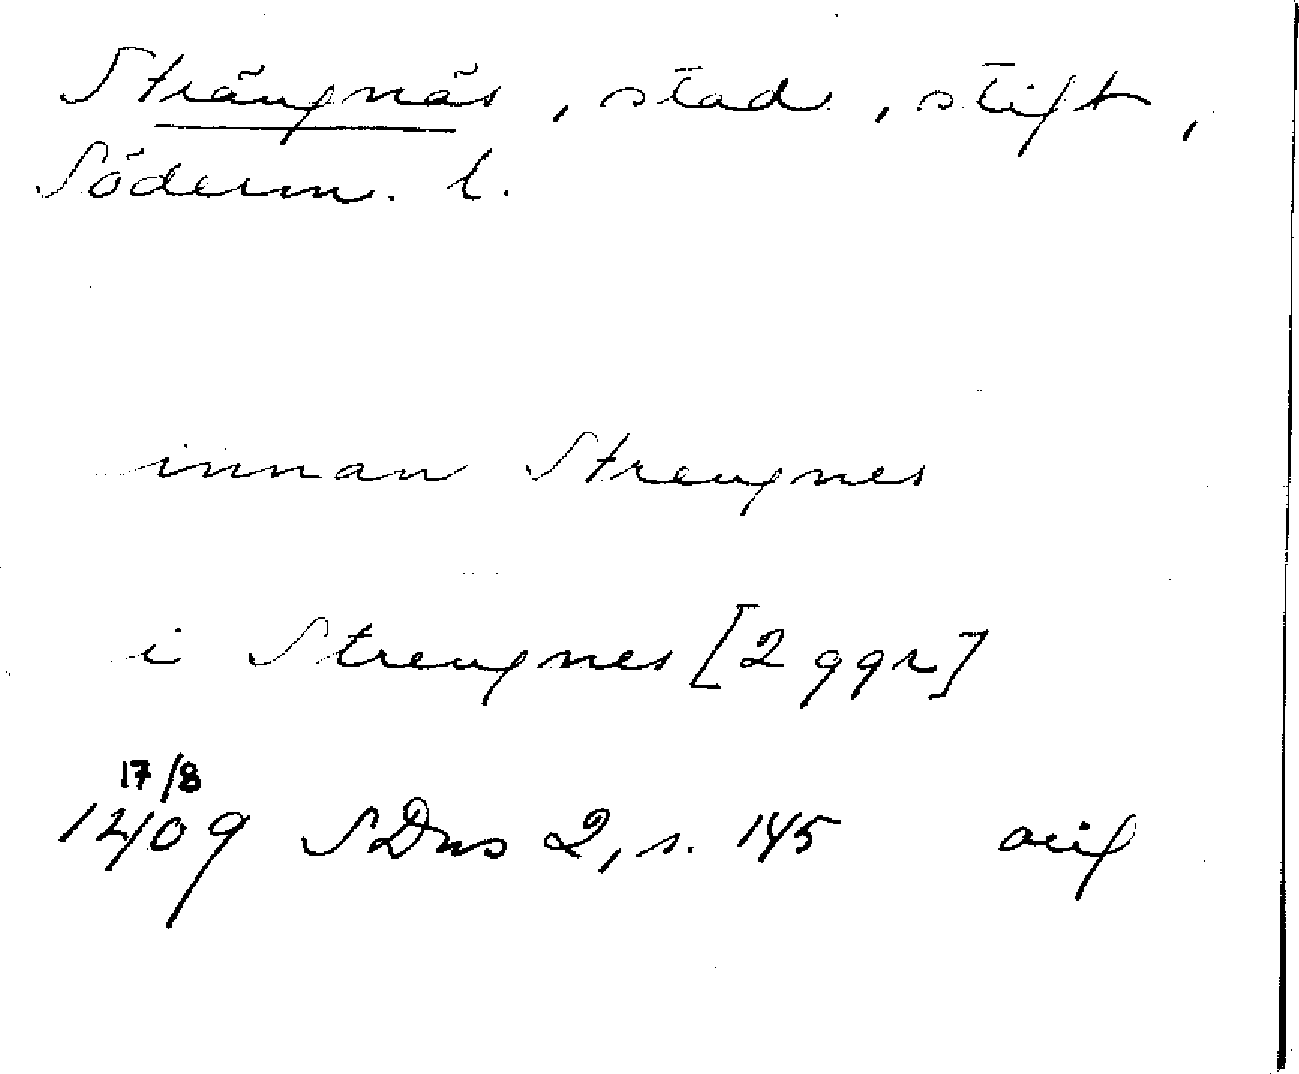 Strängnäs, stad, stift,
Söderm. l.
innan Strengnes
i Strengnes [2 ggr]
17/8
1409 SDns 2, s. 145 orig